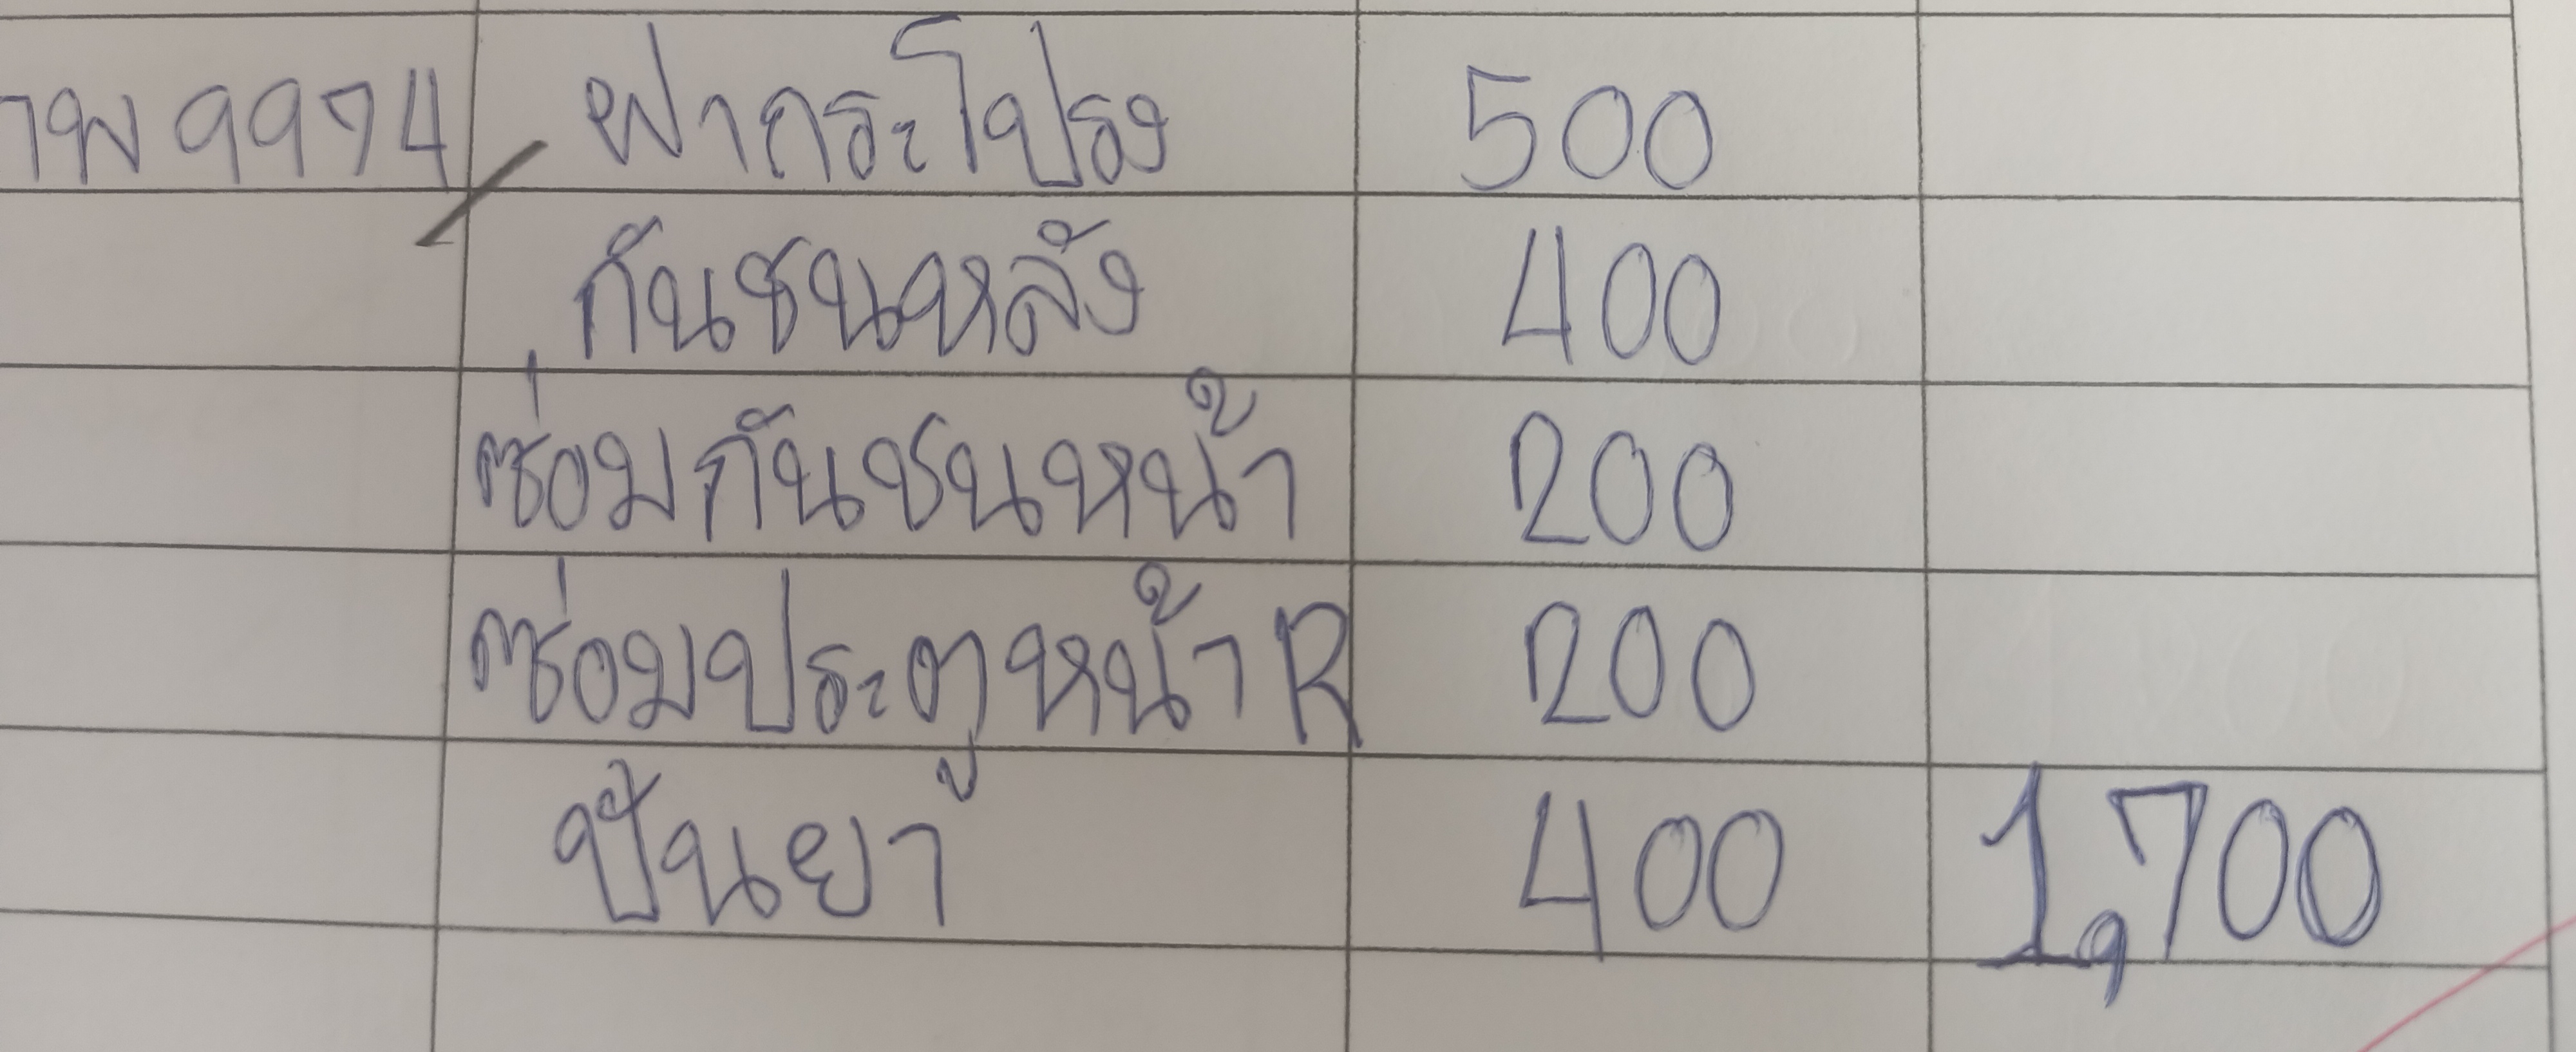 าพ 9974 ฝากระโปรง 500
กันชนหลัง 400
ซ่อมกันชนหน้า 200
ซ่อมประตูหน้า R 200
ปั่นยา 400 1,700